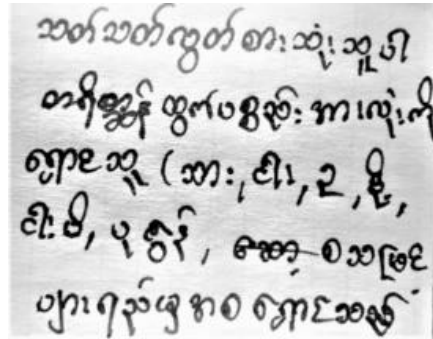 သတ်သတ်လွတ်စားသုံးသူပါ
တရိစ္ဆာန်ထွက်ပစ္စည်းအားလုံးကို
ရှောင်သူ (သား, ငါး, ဥ, နို့,
ငါးပိ, ပုဇွန်, ဆော့စ်သဖြင့်
ပျားရည်မှအစ ရှောင်သည်